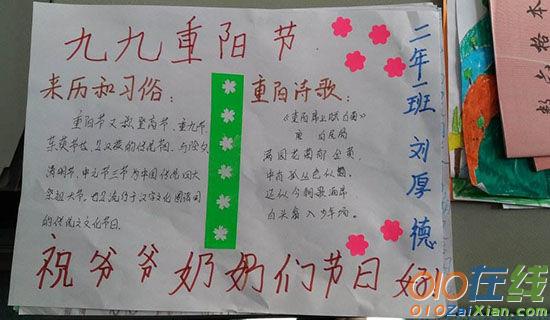 九九重阳节
来历和习俗：
重阳节又叫登高节、重九节、
茱萸节
清明节、中元节三节为中国传统四大
祭祖大节。也是流行于汉字文化圈诸国
的传统文化节日。
重阳诗歌：
满园花菊郁金黄，
中有孤丛色似霜。
还似今朝歌酒席，
白头翁入少年场。
二年一班 刘厚德
祝爷爷奶奶们节日好
数
格本
010在线
010ZaiXian.com